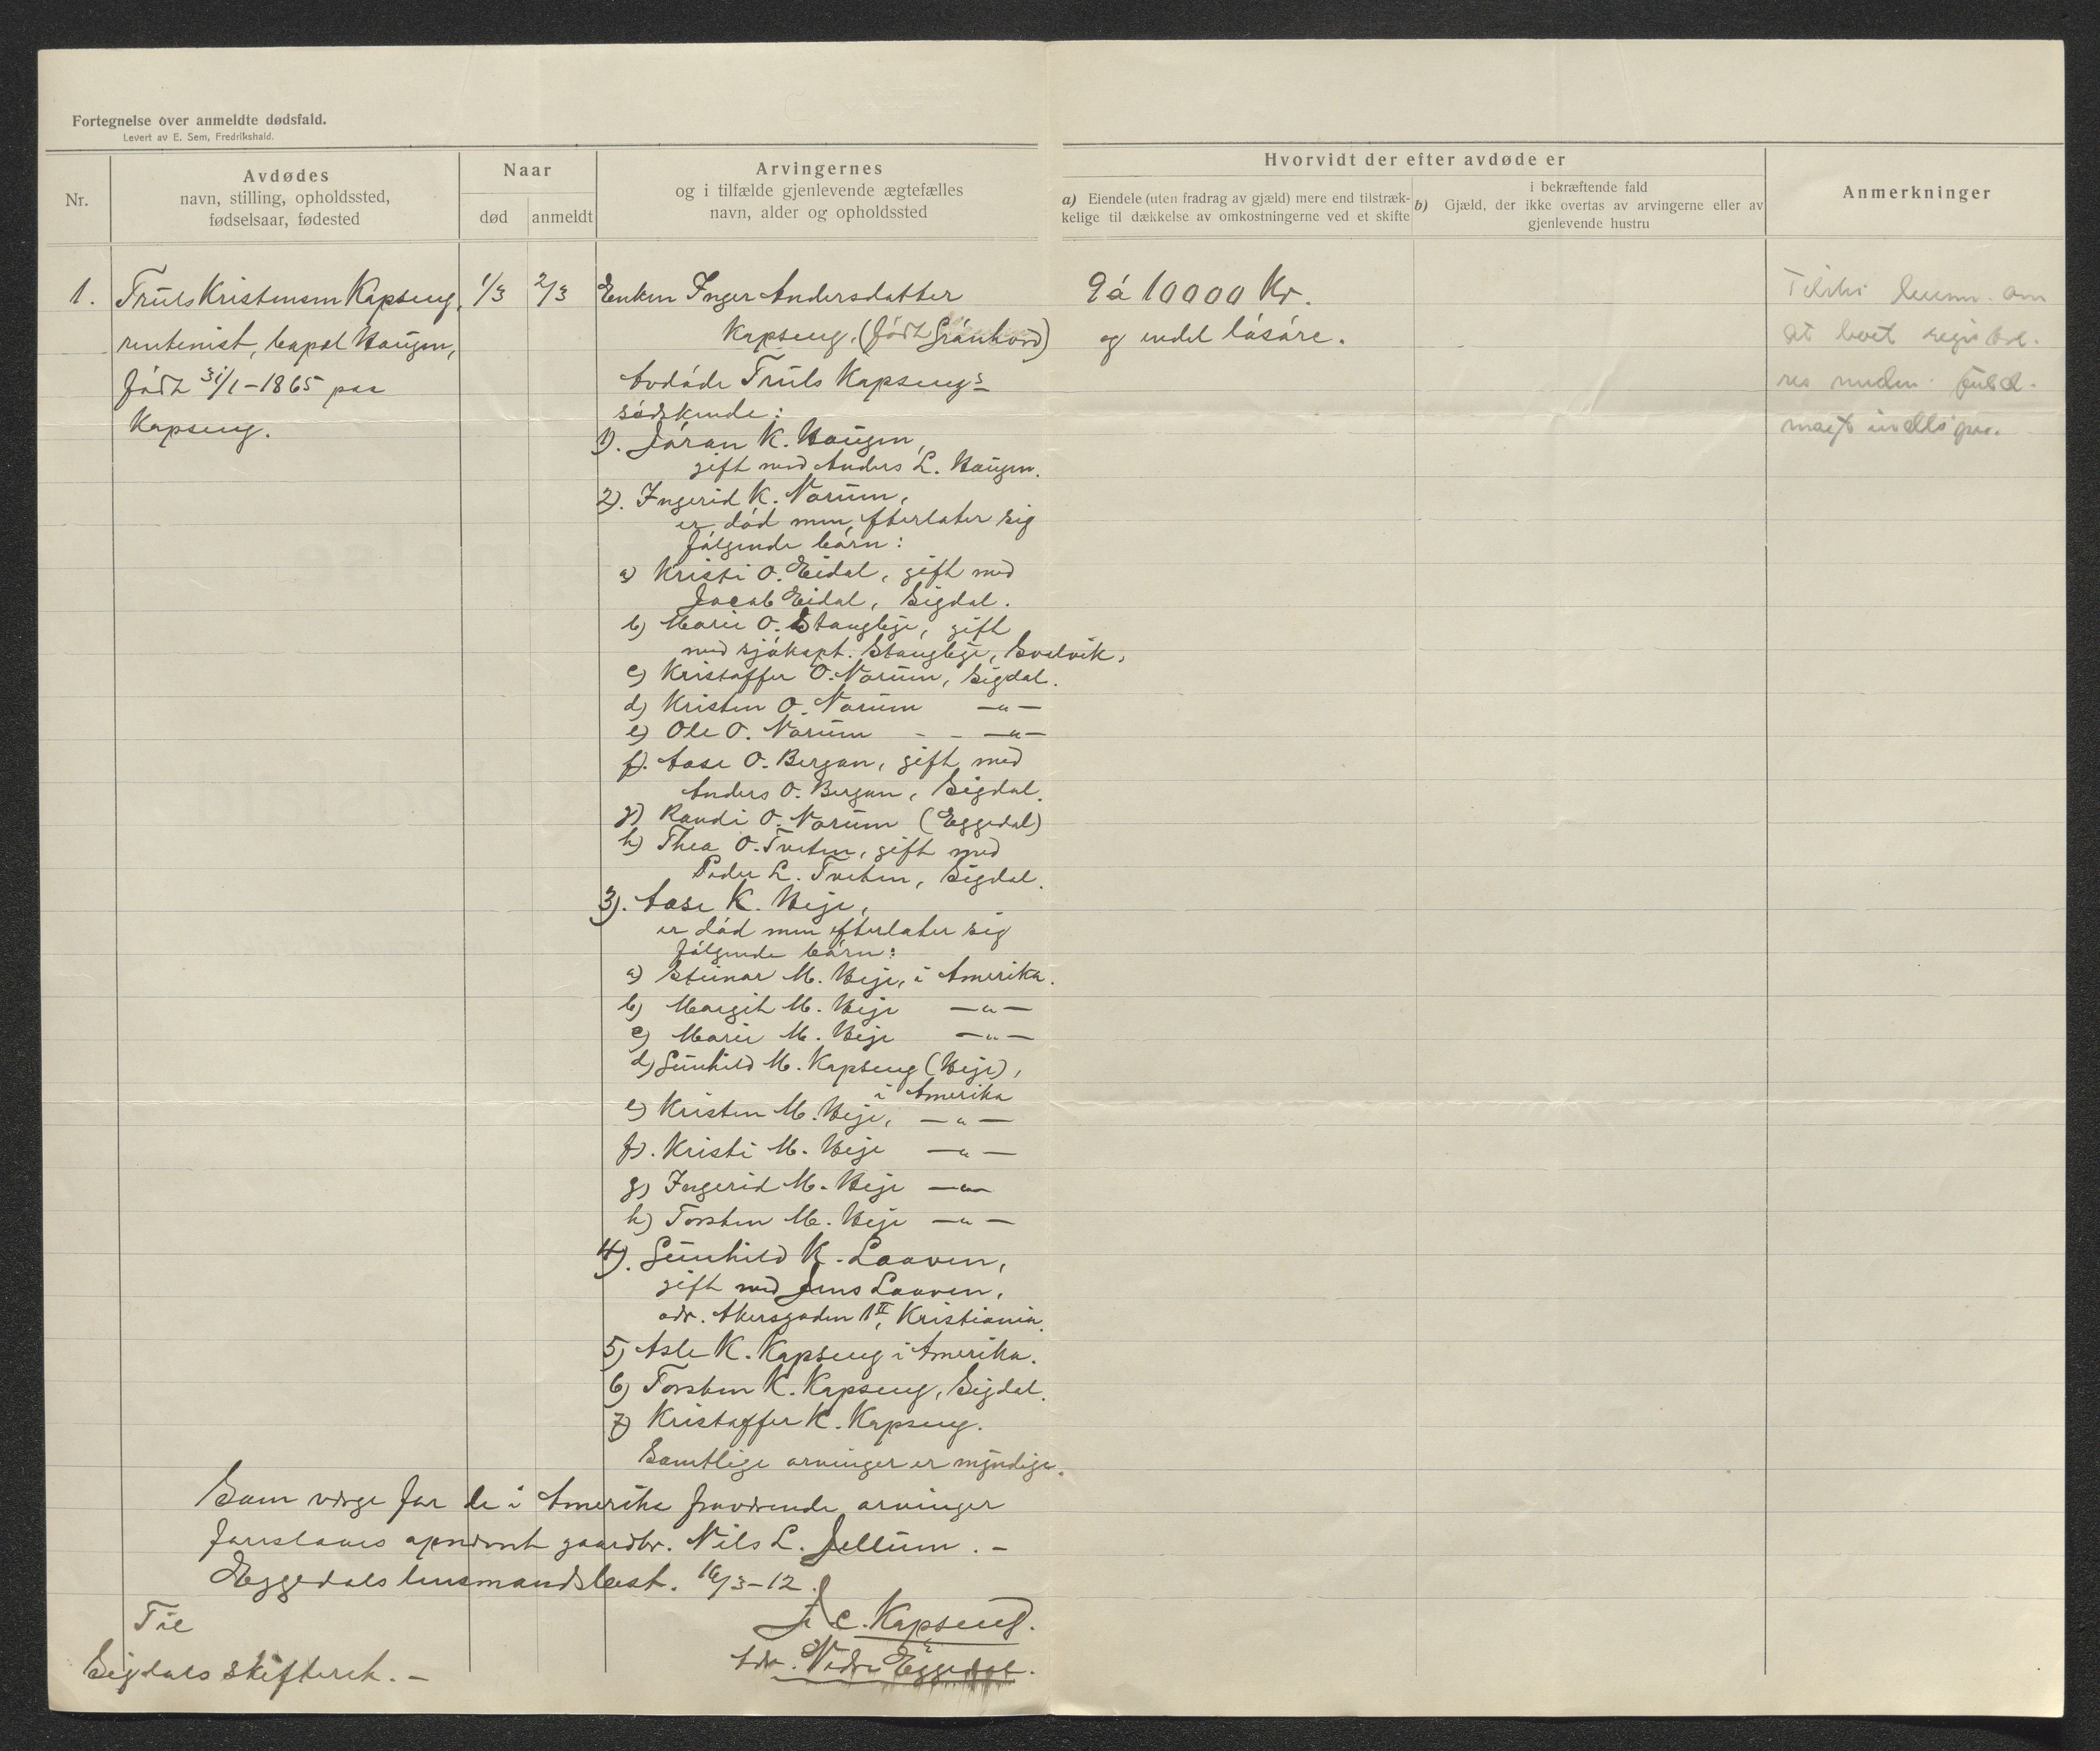 Fortegnelse over anmeldte dødsfald.
Levert av E. Sem, Fredrikshald.
Nr.
Avdødes
navn, stilling, opholdssted,
fødselsaar, fødested
Naar
død
anmeldt
Arvingernes
og i tilfælde gjenlevende ægtefælles
navn, alder og opholdssted
Hvorvidt der efter avdøde er
a) Eiendele (uten fradrag av gjæld) mere end tilstræk-
kelige til dækkelse av omkostningerne ved et skifte
i bekræftende fald
b) Gjæld, der ikke overtas av arvingerne eller av
gjenlevende hustru
Anmerkninger
1.
Truls Kristensen Kapseng,
rentenist, Haugen,
född 31/1-1865 paa
Kapseng.
1/3
2/3
Enken Inger Andersdatter
Kapseng, (född Grånhovd)
Avdöde Truls Kapsengs
södskende:
1). Jöran K. Haugen,
gift med Anders L. Haugen.
2). Ingerid K. Norum,
er död men efterlater sig
fölgende börn:
a) Kristi O. Eidal, gift med
Jacob Eidal, Sigdal.
b) Marie O. Stangleje, gift
med sjökapt. Stangleje, Svelvik,
c) Kristoffer O. Norum, Sigdal.
d) Kristen O. Norum —"—
e) Ole O. Norum - - —"—
f). Aase O. Bergan, gift med
Anders O. Bergan, Sigdal.
g) Randi O. Norum (Eggedal)
h) Thea O. Tveten, gift med
Peder L. Tveten, Sigdal.
3). Aase K. Veje,
er död men efterlater sig
fölgende börn:
a) Steinar M. Veje, i Amerika.
b) Margit M. Veje —"—
c) Marie M. Veje —"—
d) Gunhild M. Kapseng (Veje),
i Amerika
e) Kristen M. Veje, —"—
f). Kristi M. Veje —"—
g) Ingerid M. Veje —"—
h) Torsten M. Veje —"—
4). Gunhild K. Laaven,
gift med Jens Laaven,
adr. Akersgaden 1 II, Kristiania.
5) Asle K. Kapseng i Amerika.
6) Torsten K. Kapseng, Sigdal.
7) Kristoffer K. Kapseng.
Samtlige arvinger er myndige.
9 á 10000 Kr.
og endel lösöre.
Tilskr. lensm. om
at boet registre-
res mden. fuld-
magt
Som værge for de i Amerika fraværende arvinger
foreslaaes opnævnt gaardbr. Nils L. Jellum. -
Eggedals lensmandsbest. 16/3-12.
J. C. Kapseng.
Adr. Nedre Eggedal.
Til
Sigdals skifteret. -